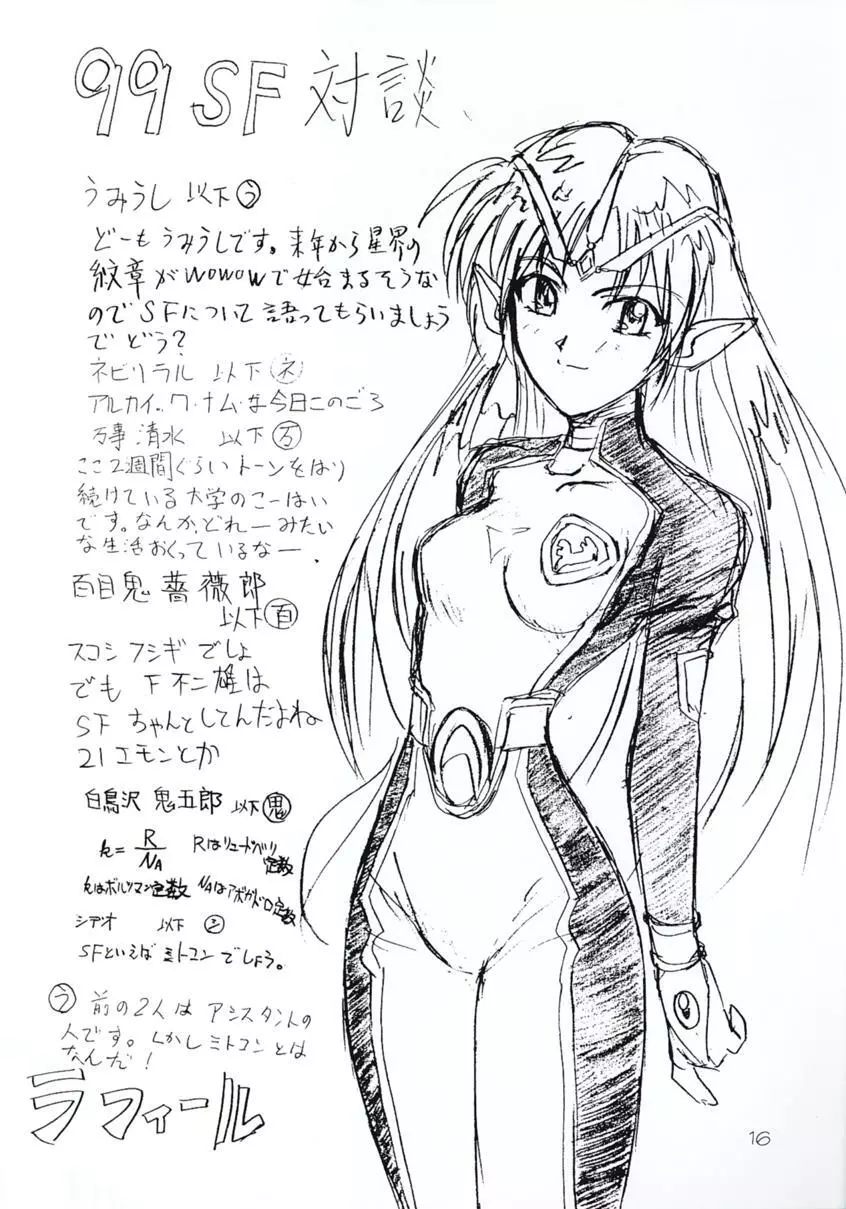 99 SF 対談、
うみうし 以下う
どーもうみうしです。来年から星界の
紋章がWOWOWで始まるそうな
のでSFについて語ってもらいましょう
で どう?
ネビリラル 以下ネ
アルカイ、、ク・ナム・な今日このごろ
万事 清水 以下万
ここ2週間ぐらいトーンをはり
続けている大学のこーはい
です。なんか、どれーみたい
な生活おくっているなー、
百目鬼 薔薇郎
以下百
スコシ フシギ でしょ
でも F不二雄は
SF ちゃんとしてんだよね
21エモンとか
白鳥沢 鬼五郎 以下鬼
k= R/NA Rはリュードベリ定数
kはボルツマン定数 NAはアボガドロ定数
シデオ 以下シ
SFといえば ミトコン でしょう。
う 前の2人は アシスタントの
人です。しかしミトコンとは
なんだ!
ラフィール
16